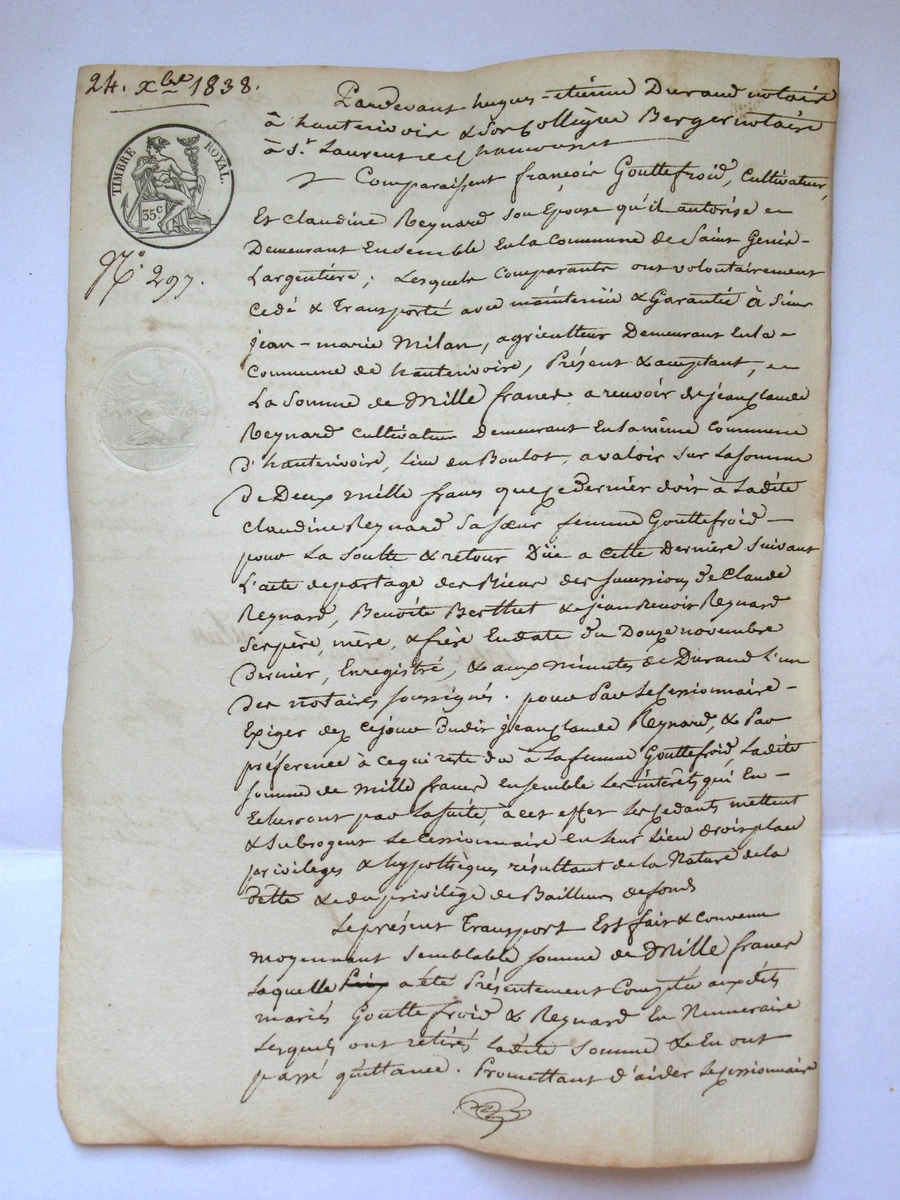 24. xbre 1838.
TIMBRE ROYAL.
35c
No. 297.
Pardevant hugues-etiénne Durand notaire
à hauterivoire & Son Collègue Berger notaire
à St. Laurent de Chamousset
Comparaissent françois Gouttefroid, Cultivateur,
Et Claudine Reynard Son Epouse qu'il autorise
Demeurant Ensemble En la Commune de Saint Genis-
L'argentiére; Lesquels Comparants ont volontairement
Cedé & Transporté avec maintenüe & Garantie à Sieur
jean-marie Milan, agriculteur Demeurant En la-
Commune de hauterivoire, Présent & acceptant,
La Somme de Mille francs, a recevoir de jean Claude
Reynard Cultivateur Demeurant En la même Commune
D'hauterivoire, Lieu du Boulot, a valoir Sur La Somme
De Deux mille francs que ce Dernier doit à Ladite
Claudine Reynard Sa Sœur femme Gouttefroid-
pour La Soulte & retour Düe a Cette Dernière Suivant
L'acte de partage des Biens des Successions de Claude
Reynard, Benoite Berthet & jean Benoit Reynard
Ses père, mère, & frère En date du Douze novembre
Dernier, Enregistré, & aux minutes de Durand L'un
Des notaires Soussignés. pour Par Le Cessionnaire-
Exiger dez Ce jour Dudit jean Claude Reynard, & Par
préférence à Ce qui reste dû à La femme Gouttefroid, Ladite
Somme de Mille francs ensemble Les intérêts qui En-
Écherront par La Suite, à Cet effet Les Cedants mettent
& Subrogent Le Cessionnaire En Leur Lieu droit place
privilèges & hypothèques résultant de la Nature de la
Dette & du privilège de Bailleur de fonds
Le présent Transport Est fait & Convenu
moyennant Semblable Somme de Mille francs
Laquelle a été Présentement Comptée auxdits
mariés Gouttefroid & Reynard En Numeraire
Lesquels ont retirés Ladite Somme & En ont
passé quittance. Promettant d'aider Le Cessionnaire